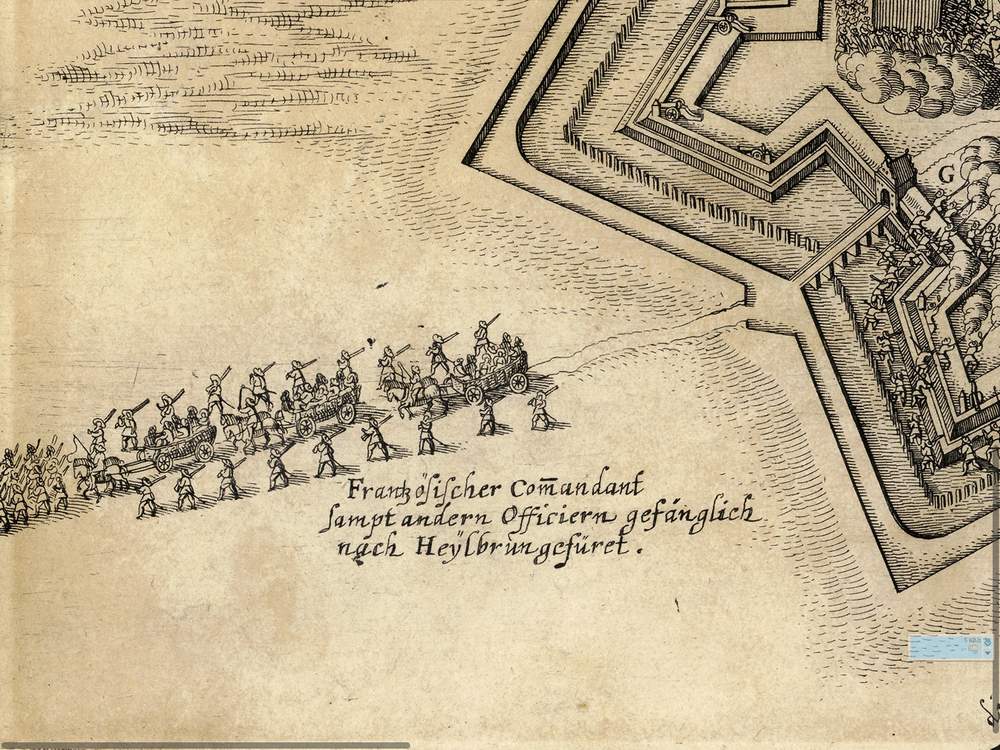 G
Frantzösischer Com̄andant
sampt andern Officiern gefänglich
nach Heÿlbrun gefüret.